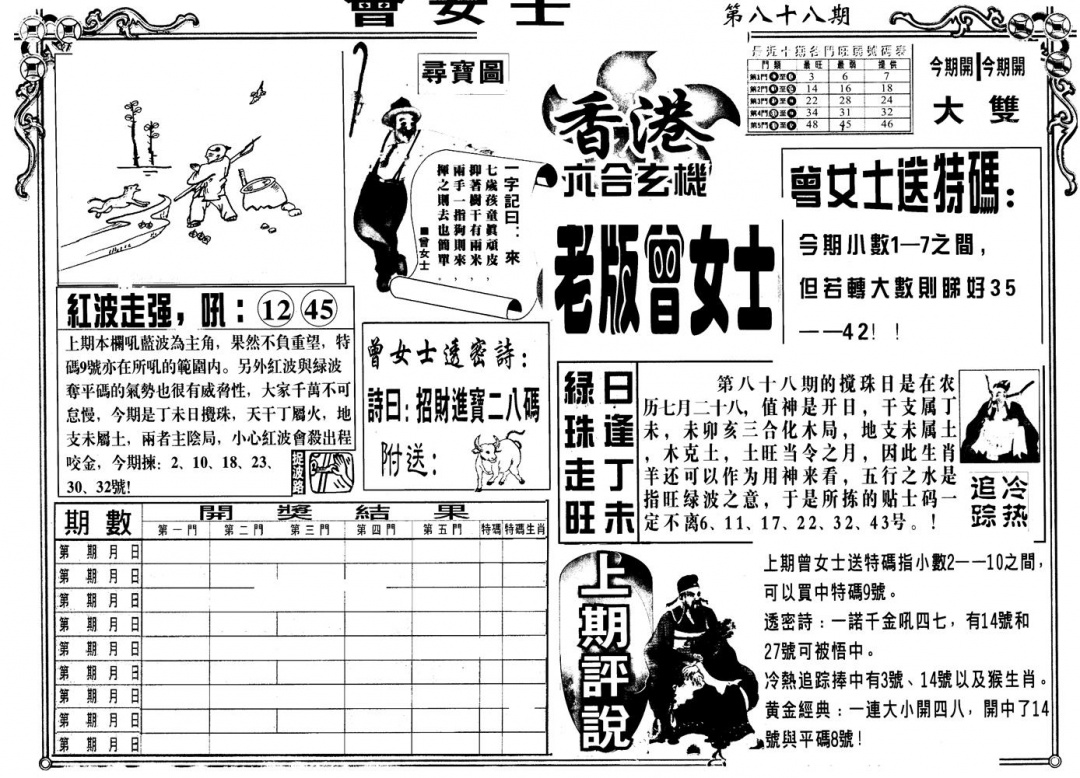 曾女士
第八十八期
尋寶圖
一字記曰：來
七歲孩童眞頑皮，
抑著樹干有兩米，
兩手一指狗則來，
揮之則去也簡單。
■曾女士
香港
六合玄機
老版曾女士
最近十期各門旺弱號碼表
門類 最旺 最弱 提供
第1門 3 6 7
第2門 14 16 18
第3門 22 28 24
第4門 34 31 32
第5門 48 45 46
今期開 今期開
大 雙
曾女士送特碼：
今期小數1—7之間，
但若轉大數則睇好35
——42！！
紅波走强，吼：12 45
上期本欄吼藍波為主角，果然不負重望，特
碼9號亦在所吼的範圍内。另外紅波與緑波
奪平碼的氣勢也很有威脅性，大家千萬不可
怠慢，今期是丁未日攪珠，天干丁屬火，地
支未屬土，兩者主陰局，小心紅波會殺出程
咬金，今期揀：2、10、18、23、
30、32號!
捉波路
曾女士透密詩：
詩曰：招財進寶二八碼
附送：
日逢丁未
綠珠走旺
第八十八期的攪珠日是在农
历七月二十八，值神是开日，干支属丁
未，未卯亥三合化木局，地支未属土
，木克土，土旺当令之月，因此生肖
羊还可以作为用神来看，五行之水是
指旺绿波之意，于是所拣的贴士码一
定不离6、11、17、22、32、43号。！
冷热
追踪
期數 開獎結果
第一門 第二門 第三門 第四門 第五門 特碼 特碼生肖
第 期 月 日
第 期 月 日
第 期 月 日
第 期 月 日
第 期 月 日
第 期 月 日
第 期 月 日
第 期 月 日
第 期 月 日
上期評說
上期曾女士送特碼指小數2——10之間，
可以買中特碼9號。
透密詩：一諾千金吼四七，有14號和
27號可被悟中。
冷熱追踪捧中有3號、14號以及猴生肖。
黄金經典：一連大小開四八，開中了14
號與平碼8號！